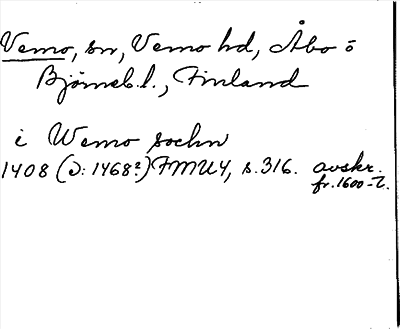 Vemo, sn, Vemo hd, Åbo o
Björneb.l., Finland
i Wemo sochn
1408 (ɔ: 1468?) FMU 4, s. 316. avskr.
fr. 1600-t.